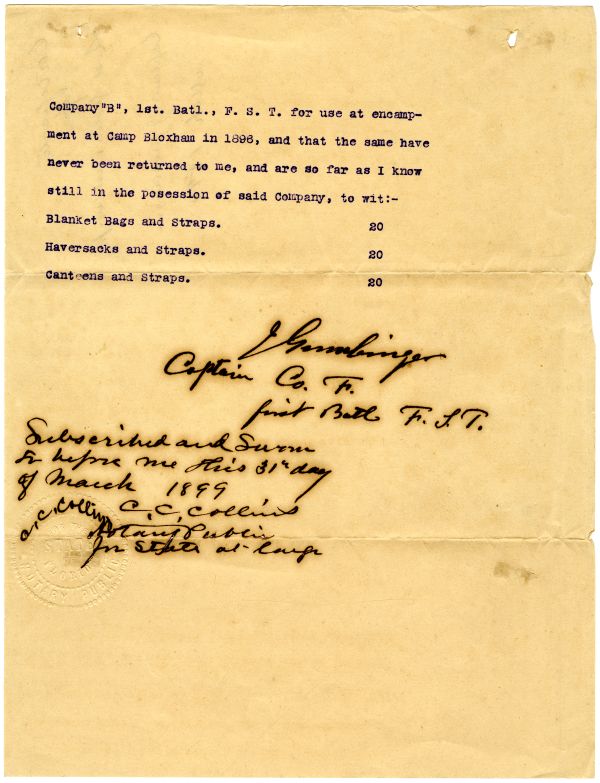 Company"B", 1st. Batl., F. S. T. for use at encamp-
ment at Camp Bloxham in 1896, and that the same have
never been returned to me, and are so far as I know
still in the posession of said Company, to wit:-
Blanket Bags and Straps. 20
Haversacks and Straps. 20
Canteens and Straps. 20
J Gumbinger
Captain Co. F.
first Batl F. S. T.
Subscribed and Sworn
to before me this 31st day
of March 1899
C. C. Collins
C. C. Collins
Notary Public
for State at large
NOTARY PUBLIC